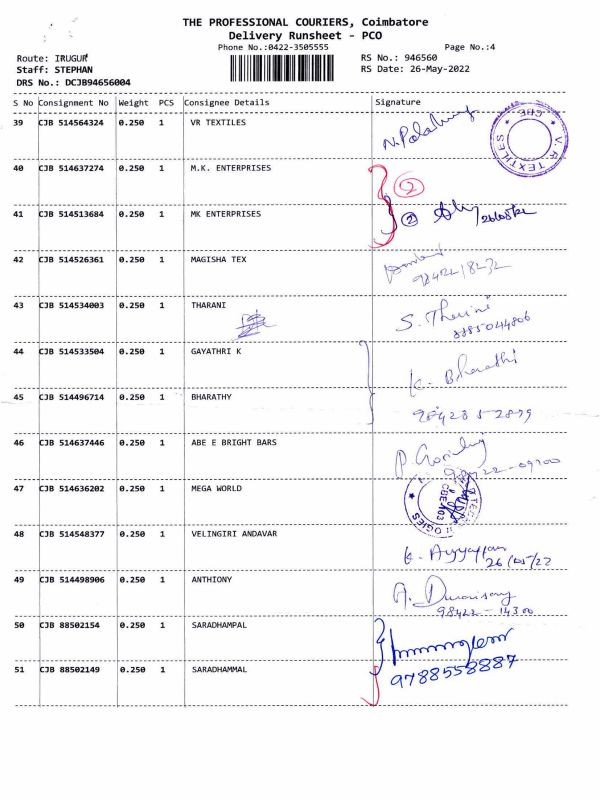 THE PROFESSIONAL COURIERS, Coimbatore
Delivery Runsheet - PCO
Phone No.:0422-3505555 Page No.:4
Route: IRUGUR RS No.: 946560
Staff: STEPHAN RS Date: 26-May-2022
DRS No.: DCJB94656004
S No Consignment No Weight PCS Consignee Details Signature
39 CJB 514564324 0.250 1 VR TEXTILES
V.R. TEXTILES * CBE *
40 CJB 514637274 0.250 1 M.K. ENTERPRISES
2
41 CJB 514513684 0.250 1 MK ENTERPRISES 2 26/05/22
42 CJB 514526361 0.250 1 MAGISHA TEX
98422 18232
43 CJB 514534003 0.250 1 THARANI S. Tharini
8885044806
44 CJB 514533504 0.250 1 GAYATHRI K K. Bharathi
45 CJB 514496714 0.250 1 BHARATHY
98428 52899
46 CJB 514637446 0.250 1 ABE E BRIGHT BARS
47 CJB 514636202 0.250 1 MEGA WORLD
48 CJB 514548377 0.250 1 VELINGIRI ANDAVAR K. Ayyappan
26/05/22
49 CJB 514498906 0.250 1 ANTHIONY A. Duraisamy
98422-14300
50 CJB 88502154 0.250 1 SARADHAMPAL
51 CJB 88502149 0.250 1 SARADHAMMAL 9788558887